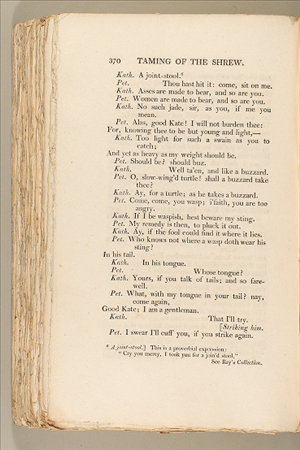 370 TAMING OF THE SHREW.
Kath. A joint-stool.⁸
Pet. Thou hast hit it: come, sit on me.
Kath. Asses are made to bear, and so are you.
Pet. Women are made to bear, and so are you.
Kath. No such jade, sir, as you, if me you
mean.
Pet. Alas, good Kate! I will not burden thee:
For, knowing thee to be but young and light,—
Kath. Too light for such a swain as you to
catch;
And yet as heavy as my weight should be.
Pet. Should be? should buz.
Kath. Well ta'en, and like a buzzard.
Pet. O, slow-wing'd turtle! shall a buzzard take
thee?
Kath. Ay, for a turtle; as he takes a buzzard.
Pet. Come, come, you wasp; i'faith, you are too
angry.
Kath. If I be waspish, best beware my sting.
Pet. My remedy is then, to pluck it out.
Kath. Ay, if the fool could find it where it lies.
Pet. Who knows not where a wasp doth wear his
sting?
In his tail.
Kath. In his tongue.
Pet. Whose tongue?
Kath. Yours, if you talk of tails; and so fare-
well.
Pet. What, with my tongue in your tail? nay,
come again,
Good Kate; I am a gentleman.
Kath. That I'll try.
[Striking him.
Pet. I swear I'll cuff you, if you strike again.
⁸ A joint-stool.] This is a proverbial expression:
"Cry you mercy, I took you for a join'd stool."
See Ray's Collection.